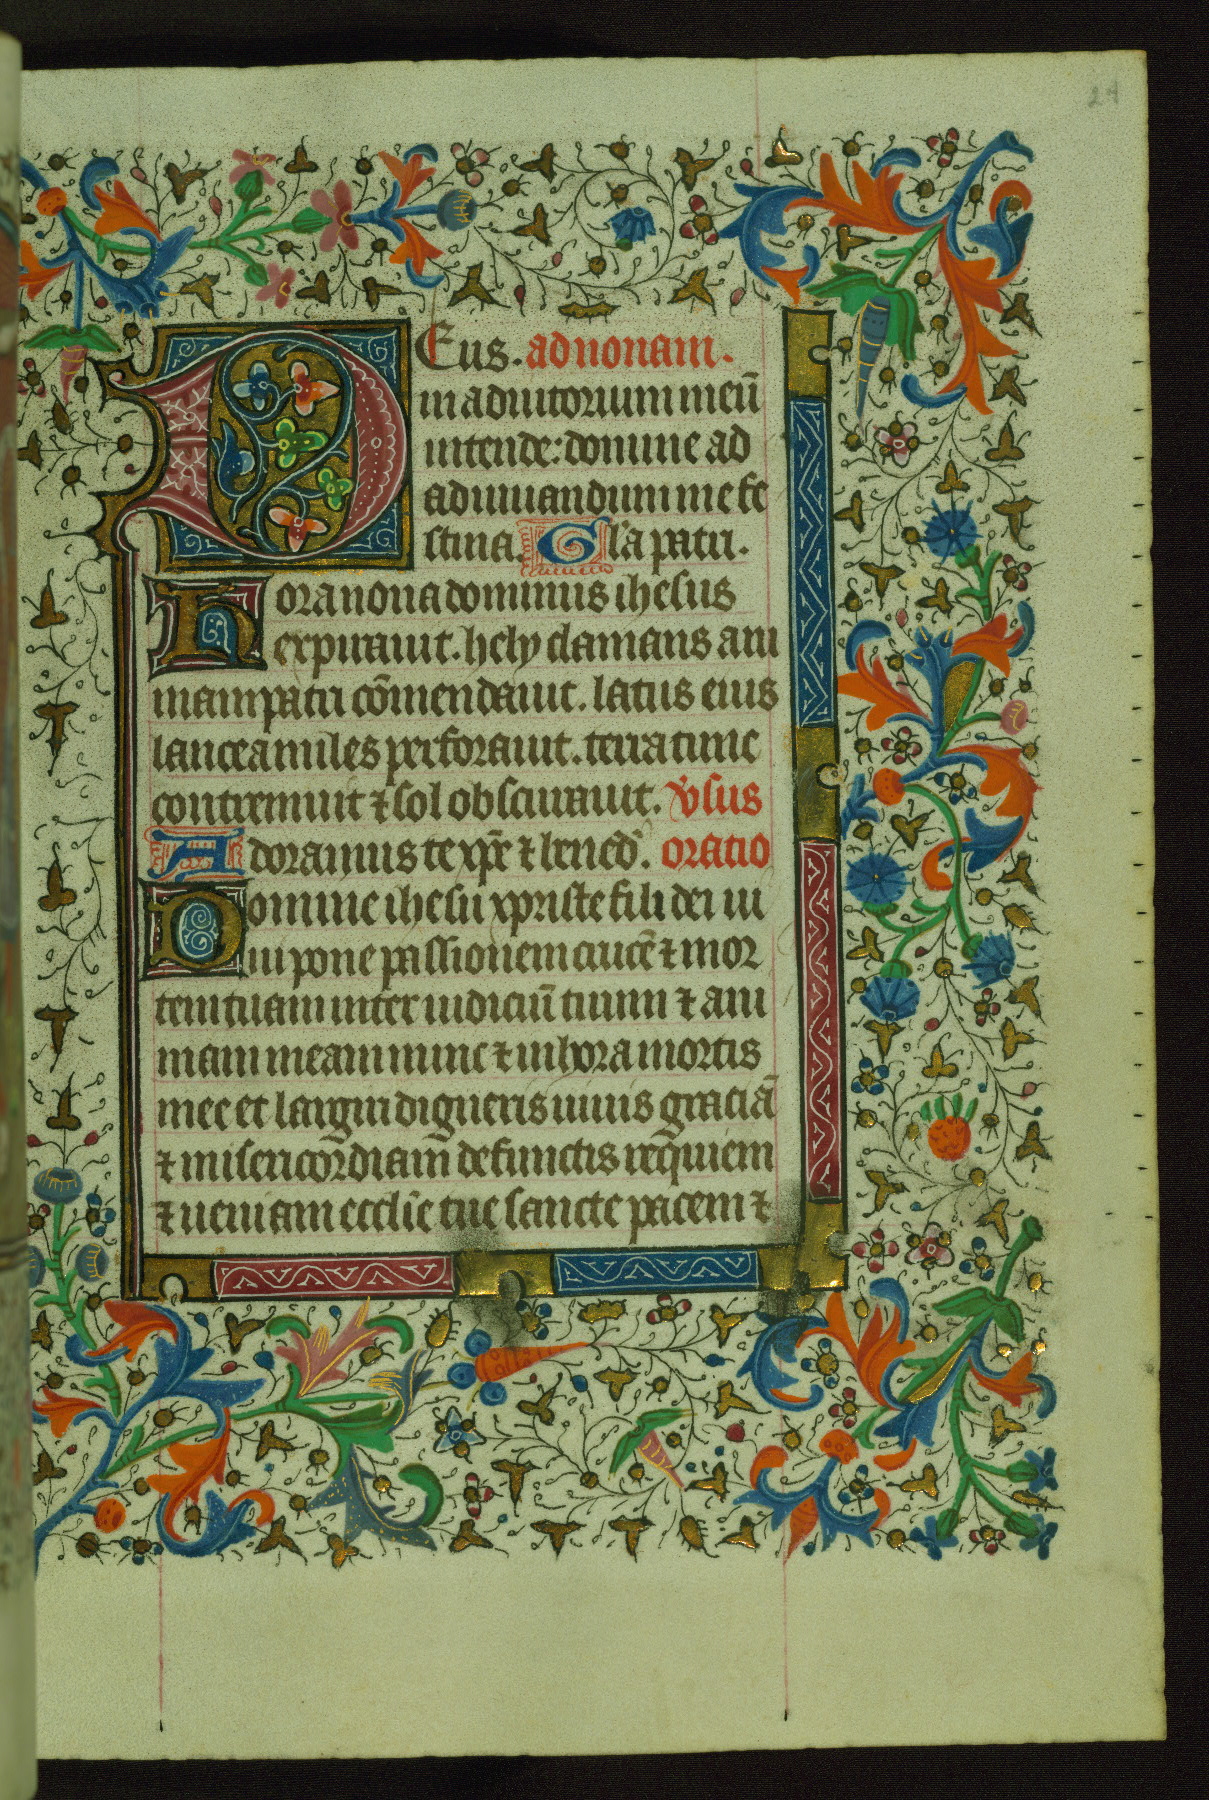 24
DEus. ad nonam.
in adiutorium meū
intende: domine ad
adiuuandum me fe
stina. Gl'a patri.
Hora nona dominus ihesus
expirauit. hely clamans ani
mam patri cōmendauit. latus eius
lancea miles perforauit. terra tunc
contremuit ⁊ sol obscurauit. v̾sus
Adoramus te xp̄e ⁊ bened'. oratio
Domine ihesu xpriste fili dei ui
ui pone passionem crucē ⁊ mor
tem tuam inter iudiciū tuum ⁊ ani
mam meam nunc ⁊ in hora mortis
mee et largiri digneris uiuis graciā
⁊ misericordiam defunctis requiem
⁊ ueniam eccl̄ie tue sancte pacem ⁊